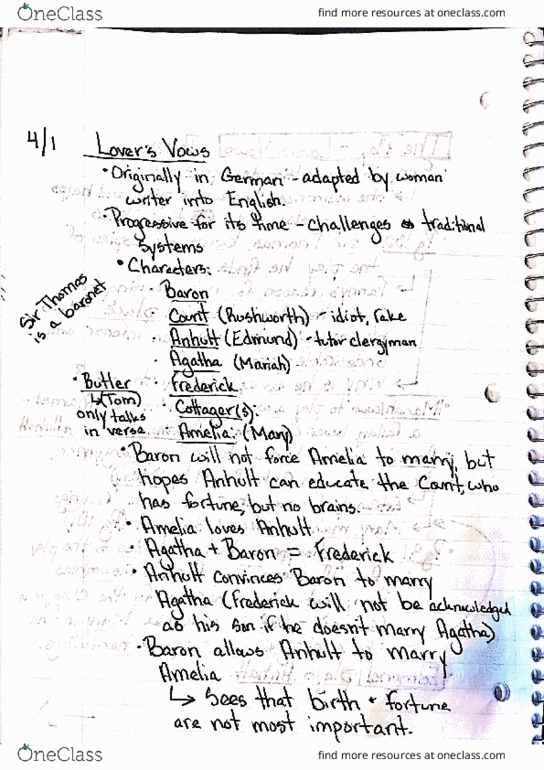 OneClass
find more resources at oneclass.com
4/1
Lover's Vows
• Originally in German - adapted by woman
writer into English.
• Progressive for its time - challenges traditional
systems
• Characters:
Sir Thomas
is a baronet
Baron
Count (Rushworth) - idiot, rake
Anhult (Edmund) - tutor clergyman
Agatha (Mariah)
• Butler
↳ (Tom)
only talks
in verse.
Frederick
Cottager(s):
Amelia: (Mary)
• Baron will not force Amelia to marry, but
hopes Anhult can educate the Count, who
has fortune, but no brains.
• Amelia loves Anhult.
• Agatha + Baron = Frederick
• Anhult convinces Baron to marry
Agatha (Frederick will not be acknowledged
as his son if he doesn't marry Agatha)
• Baron allows Anhult to marry
Amelia
↳ Sees that birth + fortune
are not most important.
OneClass
find more resources at oneclass.com